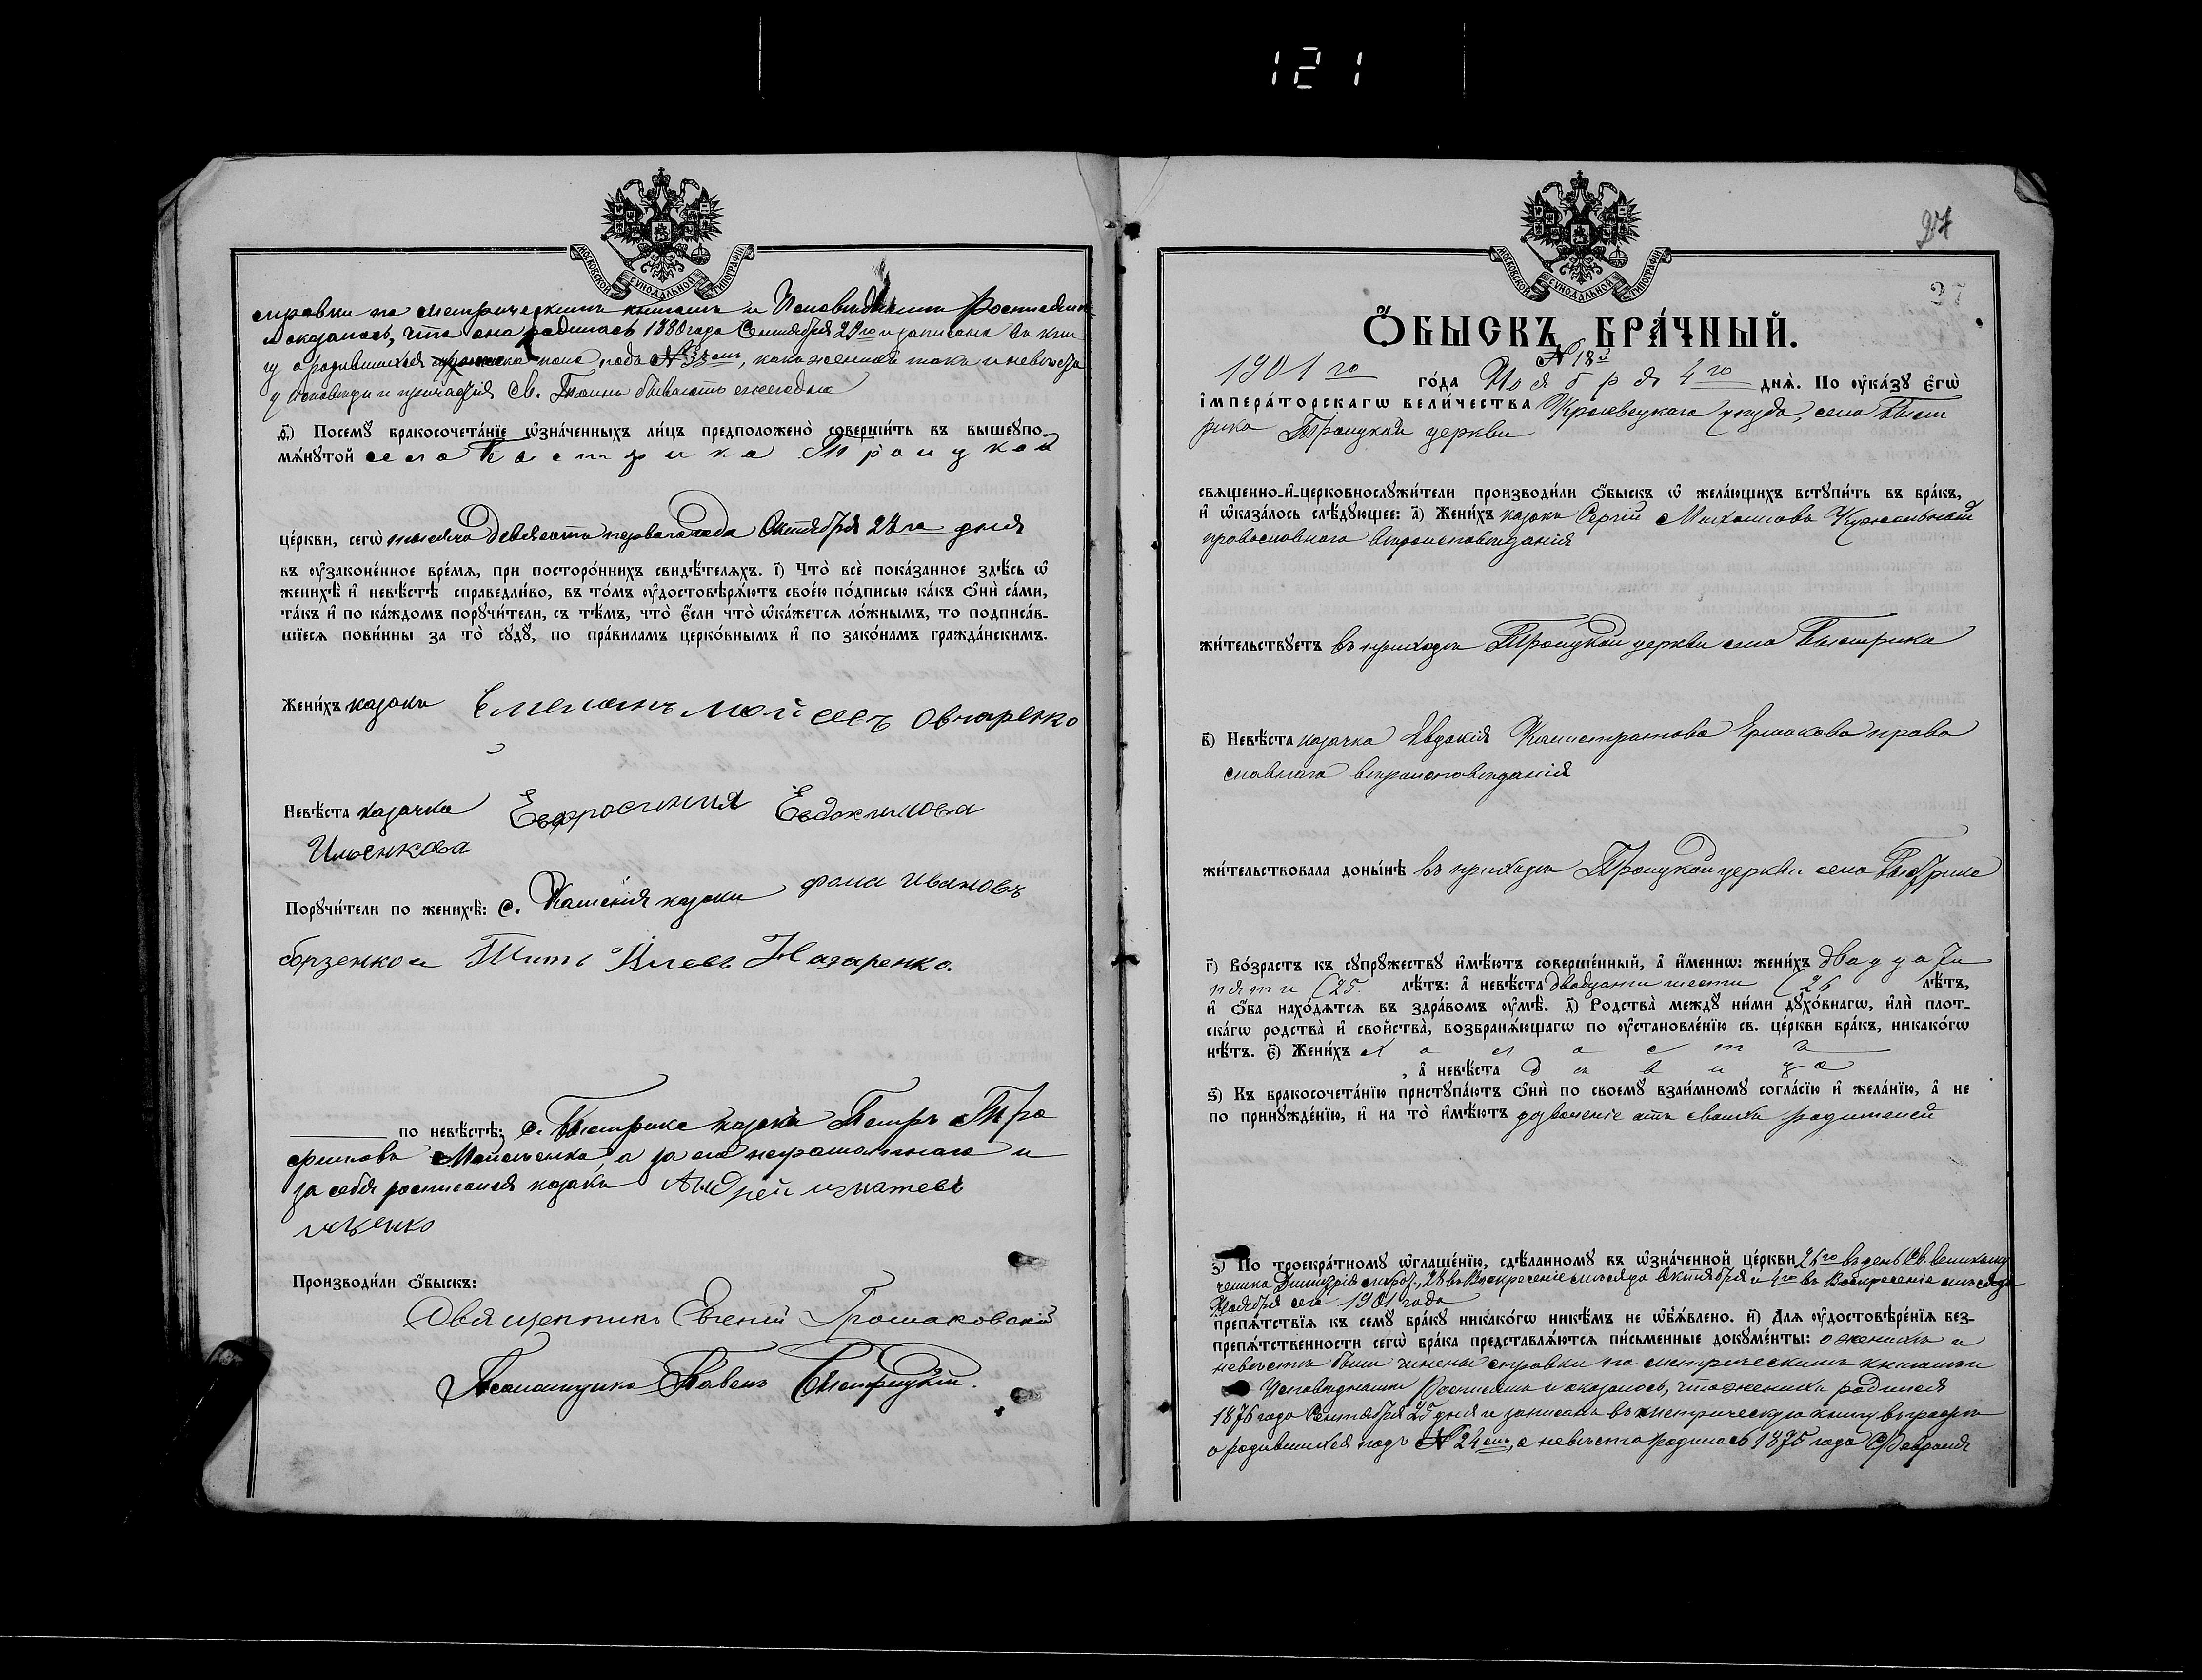 121
МОСКОВСКОЙ СѴНОДАЛЬНОЙ ТИПОГРАФІИ
справки по метрическимъ книгамъ и Исповѣднымъ Росписямъ
и оказалось, что она родилась 1880 года Сентября 29го и записана въ кни-
гу о родившихся подъ № 33емъ, какъ женихъ такъ и невѣста
у исповѣди и причастія Св. Таинъ бываютъ ежегодно
ѳ҃) Посемꙋ̀ бракосочета́нїе ѡ҆зна́ченныхъ ли́цъ предположено̀ соверши́ть въ вышеꙋпо-
мѧ́нꙋтой села Быстрика Троицкой
це́ркви, сегѡ̀ тысяча девятьсотъ перваго года Октября 28го дня
въ ᲂу҆законе́нное вре́мѧ, при посторо́ннихъ свидѣ́телѧхъ. і҃) Что̀ всѐ пока́занное здѣ́сь ѡ҆
женихѣ̀ и҆ невѣ́стѣ справедли́во, въ то́мъ ᲂу҆достовѣрѧ́ютъ свое́ю по́дписью ка́къ ѻ҆нѝ са́ми,
та́къ и҆ по ка́ждомъ порꙋчи́тели, съ тѣ́мъ, что̀ є҆́сли что̀ ѡ҆ка́жетсѧ ло́жнымъ, то подписа́в-
шїесѧ пови́нны за то̀ сꙋдꙋ̀, по пра́виламъ церко́внымъ и҆ по зако́намъ гражда́нскимъ.
Жени́хъ казакъ Емельянъ Мойсеевъ Овчаренко
Невѣ́ста казачка Евфросинія Евдокимова
Ильенкова
Порꙋчи́тели по женихѣ̀: с. Камення казаки Фома Ивановъ
Борзенко и Титъ Назаренко.
по невѣ́стѣ: с. Быстрика казакъ Петръ Тро
фимовъ Мойсеенко, а за его неграмотнаго и
за себя росписался казакъ Андрей Игнатьевъ
Производи́ли ѻ҆́быскъ:
Священникъ Евгеній Громаковскій
Псаломщикъ Павелъ Быстрицкій.
МОСКОВСКОЙ СѴНОДАЛЬНОЙ ТИПОГРАФІИ
27
37
Ѻ҆БЫСКЪ БРА́ЧНЫЙ.
№ 18й
1901го го́да Ноября 4го днѧ̀. По ᲂу҆ка́зꙋ є҆гѡ̀
і҆мпера́торскагѡ вели́чества Кролевецкаго уѣзда, села Быст
рика Троицкой церкви
свѧщенно-и҆-церковнослꙋжи́тели производи́ли ѻ҆́быскъ ѡ҆ жела́ющихъ встꙋпи́ть въ бра́къ,
и҆ ѡ҆каза́лось слѣ́дꙋющее: а҃) Жени́хъ казакъ Сергій Михаиловъ
православнаго вѣроисповѣданія
жи́тельствꙋетъ въ приходѣ Троицкой церкви села Быстрика
в҃) Невѣ́ста казачка Евдокія Калистратова Ермакова право
славнаго вѣроисповѣданія
жи́тельствовала доны́нѣ въ приходѣ Троицкой церкви села Быстрика
г҃) Во́зрастъ къ сꙋпрꙋ́жествꙋ и҆мѣ́ютъ соверше́нный, а҆ и҆́менно: жени́хъ двадцати
пяти (25. лѣ́тъ: а҆ невѣ́ста двадцати шести (26 лѣ́тъ,
и҆ ѻ҆́ба нахо́дѧтсѧ въ здра́вомъ ᲂу҆мѣ̀. д҃) Родства̀ междꙋ̀ ни́ми дꙋхо́внагѡ, и҆лѝ плот-
ска́гѡ родства̀ и҆ свойства̀, возбранѧ́ющагѡ по ᲂу҆становле́нїю св. це́ркви бра́къ, никако́гѡ
нѣ́тъ. є҃) Жени́хъ холостъ
, а҆ невѣ́ста дѣвица
ѕ҃) Къ бракосочета́нїю пристꙋпа́ютъ ѻ҆нѝ по своемꙋ̀ взаи́мномꙋ согла́сїю и҆ жела́нїю, а҆ не
по принꙋжде́нїю, и҆ на то̀ и҆мѣ́ютъ дозволеніе отъ своихъ родителей
з҃) По троекра́тномꙋ ѡ҆глаше́нїю, сдѣ́ланномꙋ въ ѡ҆зна́ченной це́ркви 26го въ день Св. великому
ченика Димитрія мироз., 28 въ Воскресеніе мѣсяца Октября и 4го въ Воскресеніе мѣсяца
Ноября сего 1901 года
препѧ́тствїѧ къ семꙋ̀ бра́кꙋ никако́гѡ никѣ́мъ не ѡ҆бъѧ́влено. и҃) Длѧ ᲂу҆достовѣре́нїѧ без-
препѧ́тственности сегѡ̀ бра́ка представлѧ́ютсѧ пи́сьменные докꙋме́нты: о женихѣ и
невѣстѣ были чинены справки по метрическимъ книгамъ и
Исповѣднымъ Росписямъ и оказалось, что женихъ родился
1876 года Сентября 25 дня и записанъ въ метрическую книгу въ графѣ
о родившихся подъ № 24емъ, а невѣста родилась 1875 года Февраля